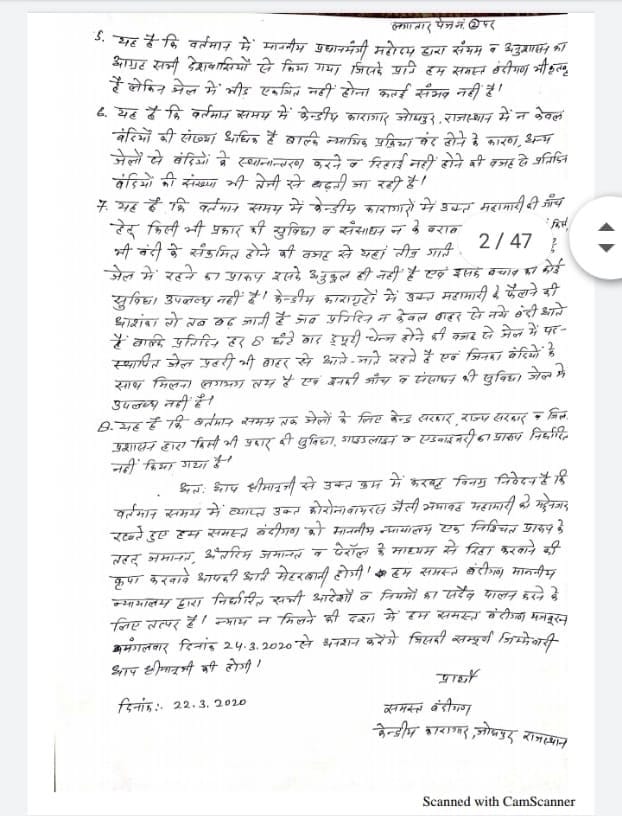 लगातार पेज नं. ② पर
5. यह है कि वर्तमान में माननीय प्रधानमंत्री महोदय द्वारा संयम व अनुशासन का
आग्रह सभी देशवासियों से किया गया जिसके प्रति हम समस्त बंदीगण भी कृतज्ञ
है लेकिन जेल में भीड़ एकत्रित नहीं होना कतई संभव नहीं है!
6. यह है कि वर्तमान समय में केन्द्रीय कारागार जोधपुर, राजस्थान में न केवल
बंदियों की संख्या अधिक है बल्कि न्यायिक प्रक्रिया बंद होने के कारण, अन्य
जेलों से बंदियों के स्थानान्तरण करने व रिहाई नहीं होने की वजह से प्रतिदिन
बंदियों की संख्या भी तेजी से बढ़ती जा रही है!
7. यह है कि वर्तमान समय में केन्द्रीय कारागारों में उक्त महामारी की जाँच
हेतु किसी भी प्रकार की सुविधा व संसाधन न के बराब किसी
भी बंदी के संक्रमित होने की वजह से यहां तीव्र गति
2 / 47
जेल में रहने का प्रारूप इसके अनुकूल ही नहीं है एवं इसके बचाव का कोई
सुविधा उपलब्ध नहीं है! केन्द्रीय कारागृहों में उक्त महामारी के फैलने की
आशंका तो तब बढ़ जाती है जब प्रतिदिन न केवल बाहर से नये बंदी आते
हैं बल्कि प्रतिदिन हर 8 घंटे बाद ड्यूटी चेन्ज होने की वजह से जेल में पद-
स्थापित जेल प्रहरी भी बाहर से आते-जाते रहते है एवं जिनका बंदियों के
साथ मिलना लगभग तय है एवं इनकी जाँच व संसाधन की सुविधा जेल में
उपलब्ध नहीं है!
8. यह है कि वर्तमान समय तक जेलों के लिए केन्द्र सरकार, राज्य सरकार व जिला
प्रशासन द्वारा किसी भी प्रकार की सुविधा, गाइडलाइन व एडवाइजरी का प्रारूप निर्धारित
नहीं किया गया है!
अतः आप श्रीमानजी से उक्त क्रम में करबद्ध विनम्र निवेदन है कि
वर्तमान समय में व्याप्त उक्त कोरोनावायरस जैसी भयावह महामारी को मद्देनजर
रखते हुए हम समस्त बंदीगण को माननीय न्यायालय एक निश्चित प्रारूप के
तहत जमानत, अंतरिम जमानत व पेरॉल के माध्यम से रिहा करवाने की
कृपा करवावे आपकी अति मेहरबानी होगी! हम समस्त बंदीगण माननीय
न्यायालय द्वारा निर्धारित सभी आदेशों व नियमों का सदैव पालन करने के
लिए तत्पर है! न्याय न मिलने की दशा में हम समस्त बंदीगण मजबूरन
मंगलवार दिनांक 24.3.2020 से अनशन करेंगे जिसकी सम्पूर्ण जिम्मेवारी
आप श्रीमानजी की होगी!
प्रार्थी
दिनांक:- 22.3.2020
समस्त बंदीगण
केन्द्रीय कारागार, जोधपुर राजस्थान
Scanned with CamScanner